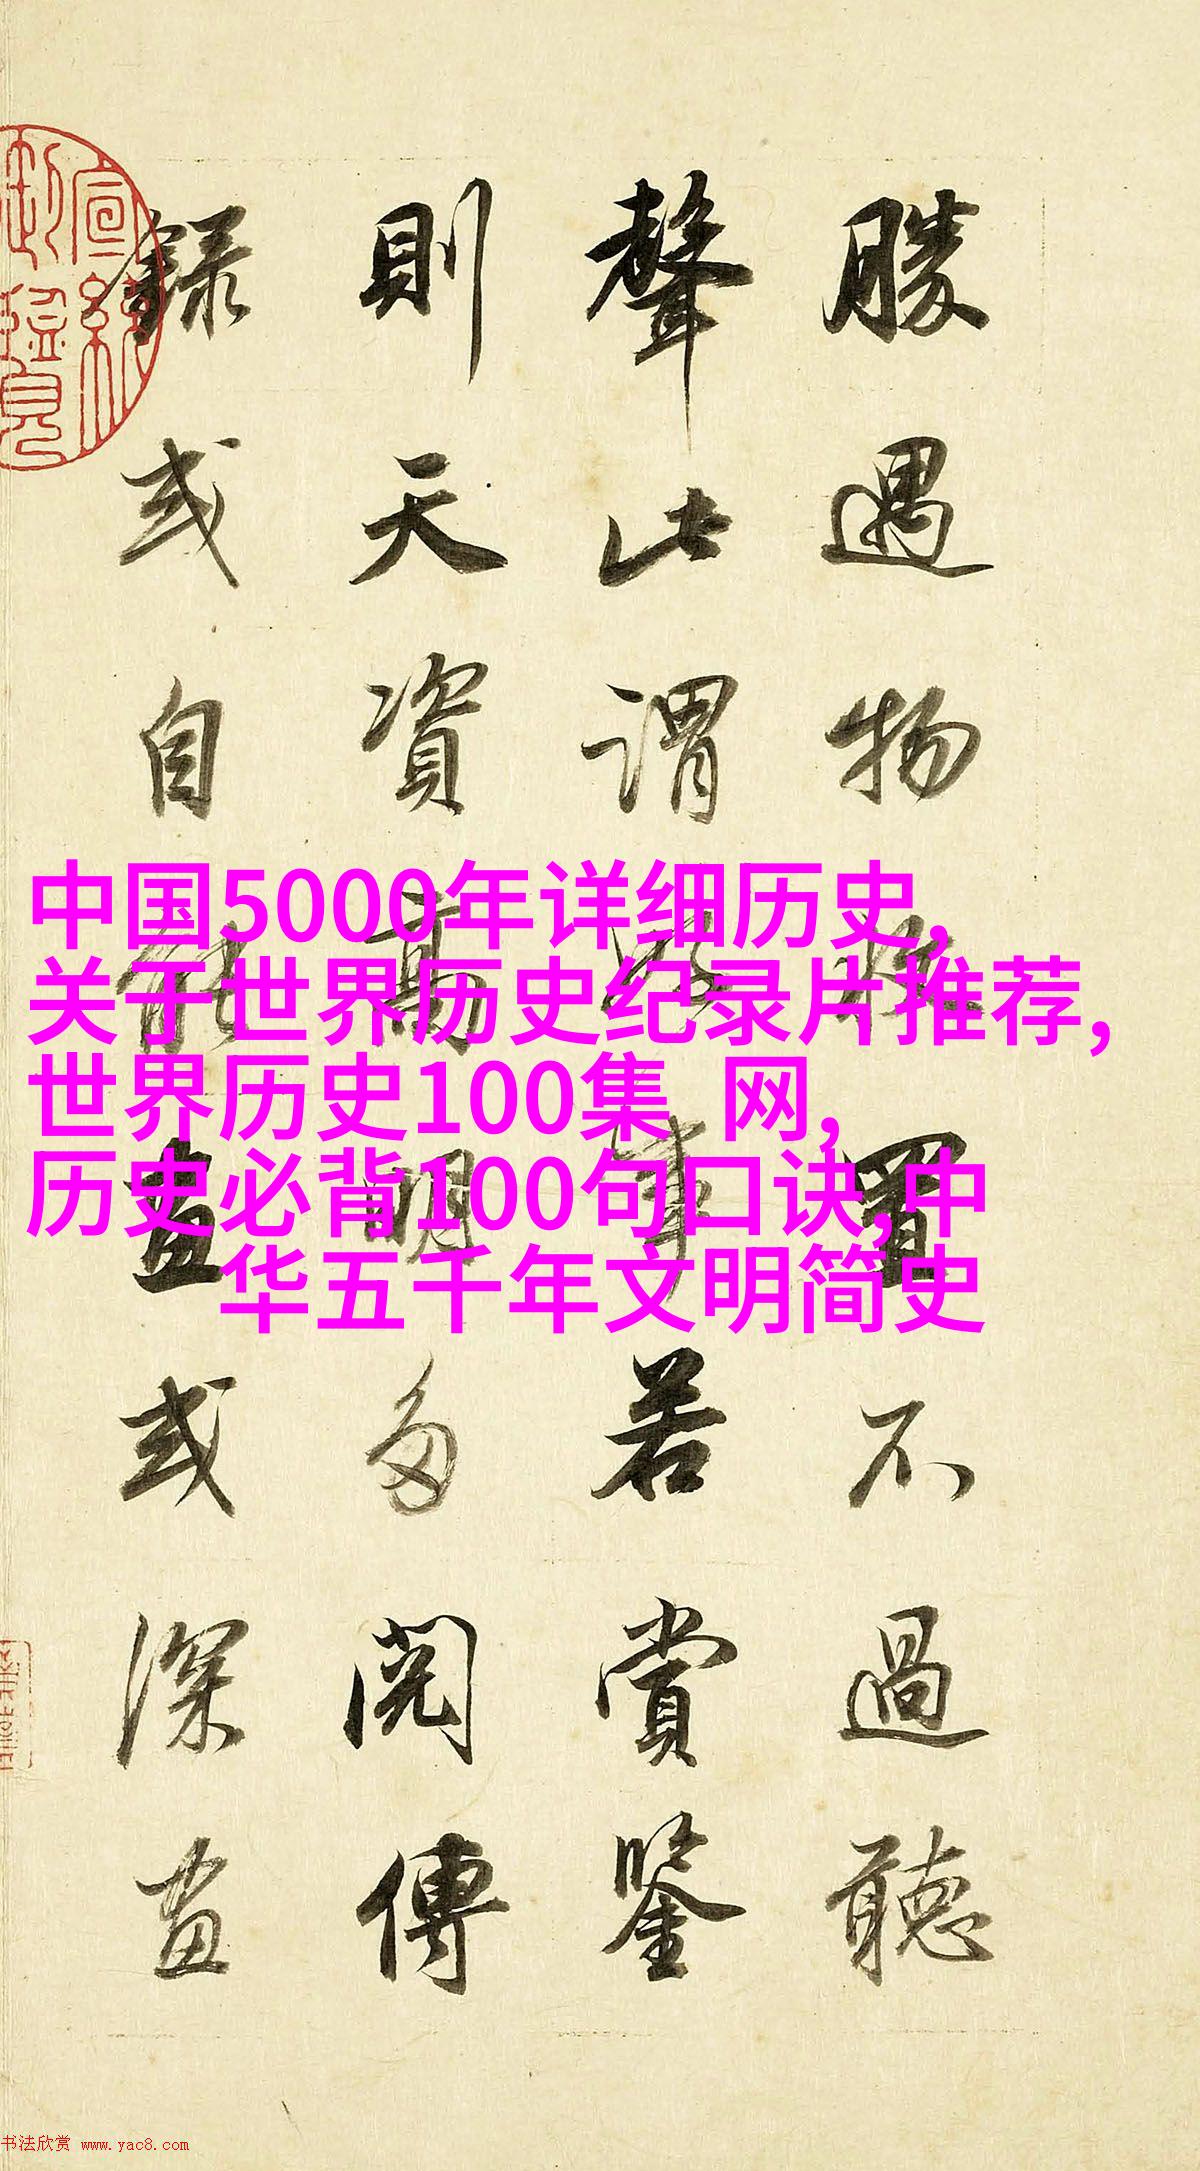 勝遇物收置不過聽
聲此謂好事若賞鑒
則天資高明多閱傳
錄或自能畫或深畫
宣統
御覽
中国5000年详细历史,
关于世界历史纪录片推荐,
世界历史100集 网,
历史必背100句口诀,中
华五千年文明简史
书法欣赏 www.yac8.com